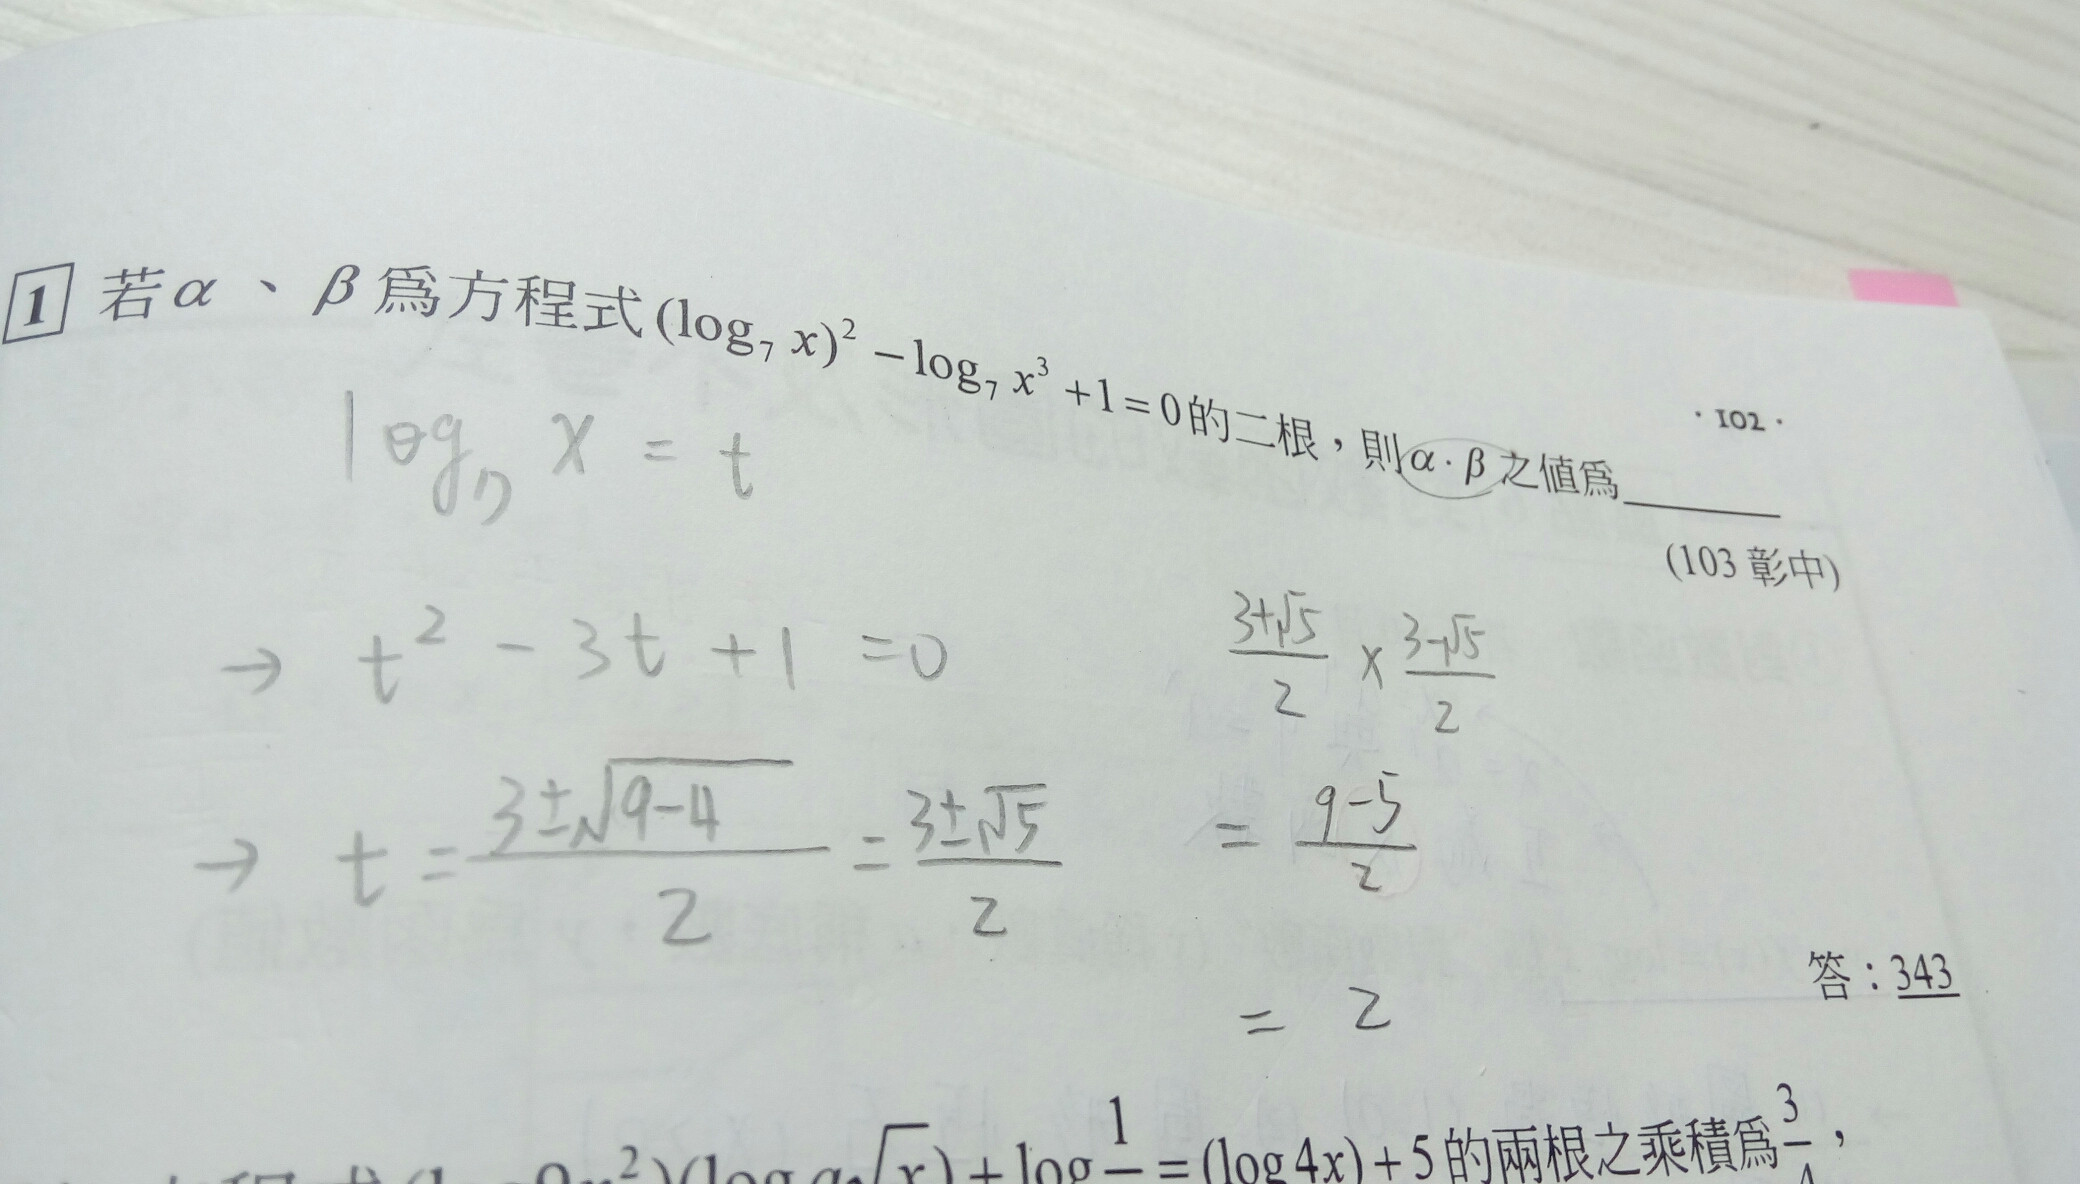 1 若α、β爲方程式(log₇ x)² − log₇ x³ +1=0的二根，則α·β之値爲______
· 102 ·
(103 彰中)
log₇ x = t
→ t² - 3t + 1 = 0
→ t = (3±√(9-4))/2 = (3±√5)/2
(3+√5)/2 × (3-√5)/2
= (9-5)/2
= 2
答：343
x²)(log a√x)+log 1/ =(log4x)+5的兩根之乘積爲3/4，